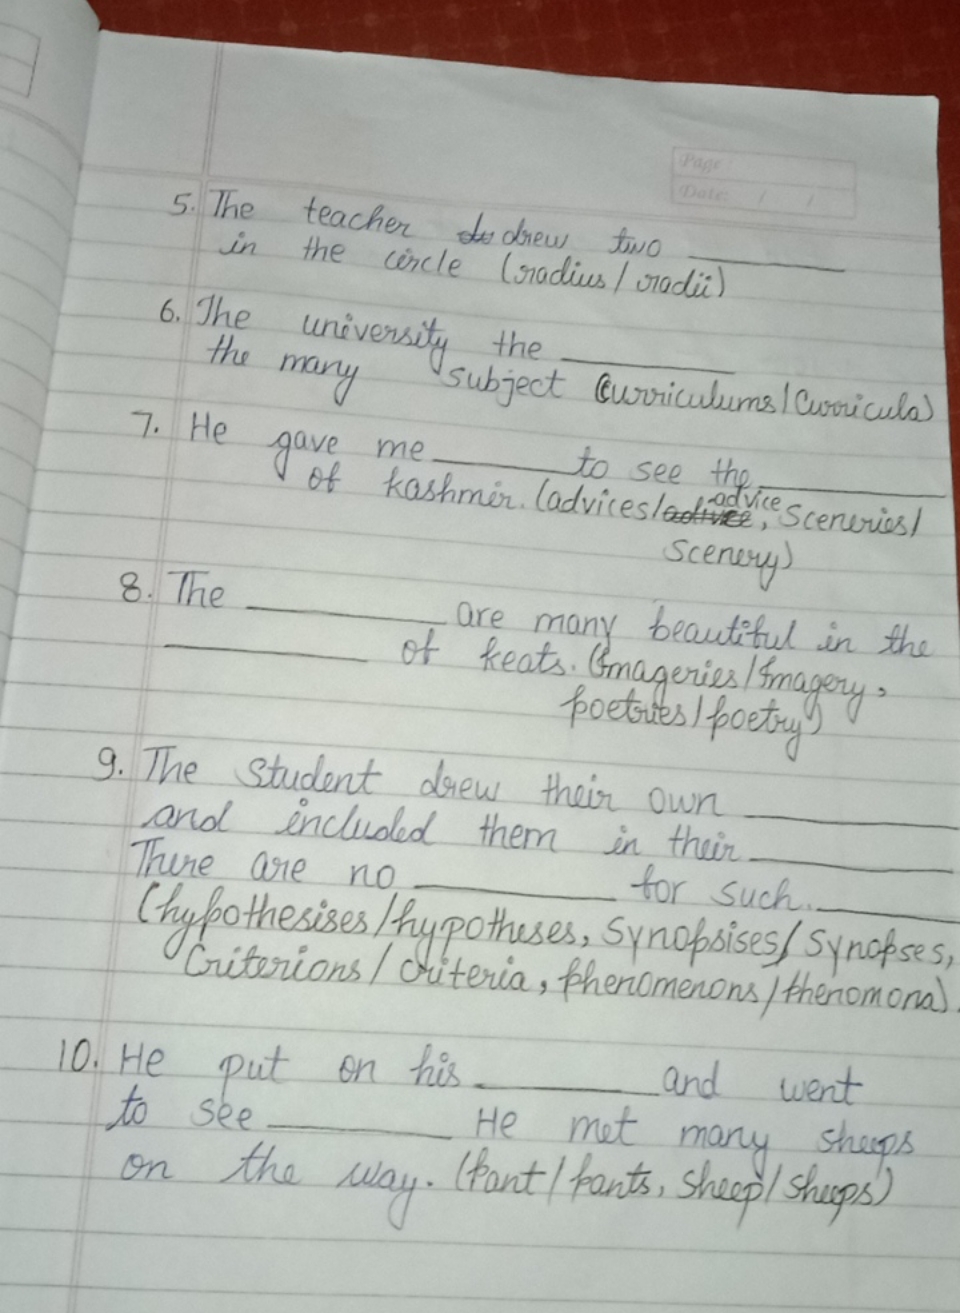 Page
Date: / /
5. The teacher drew two ______
in the circle (radius/radii)
6. The university the ______
the many subject (Curriculums/Curricula)
7. He gave me ______ to see the ______
of kashmir. (advices/advice, Sceneries/
Scenery)
8. The ______ are many beautiful in the
______ of keats. (Imageries/Imagery,
poetries/poetry)
9. The Student drew their own ______
and included them in their ______
There are no ______ for such. ______
(hypothesises/hypotheses, Synopsises/Synopses,
Criterions/criteria, phenomenons/phenomona).
10. He put on his ______ and went
to see ______ He met many sheeps
on the way. (pant/pants, Sheep/Sheeps)